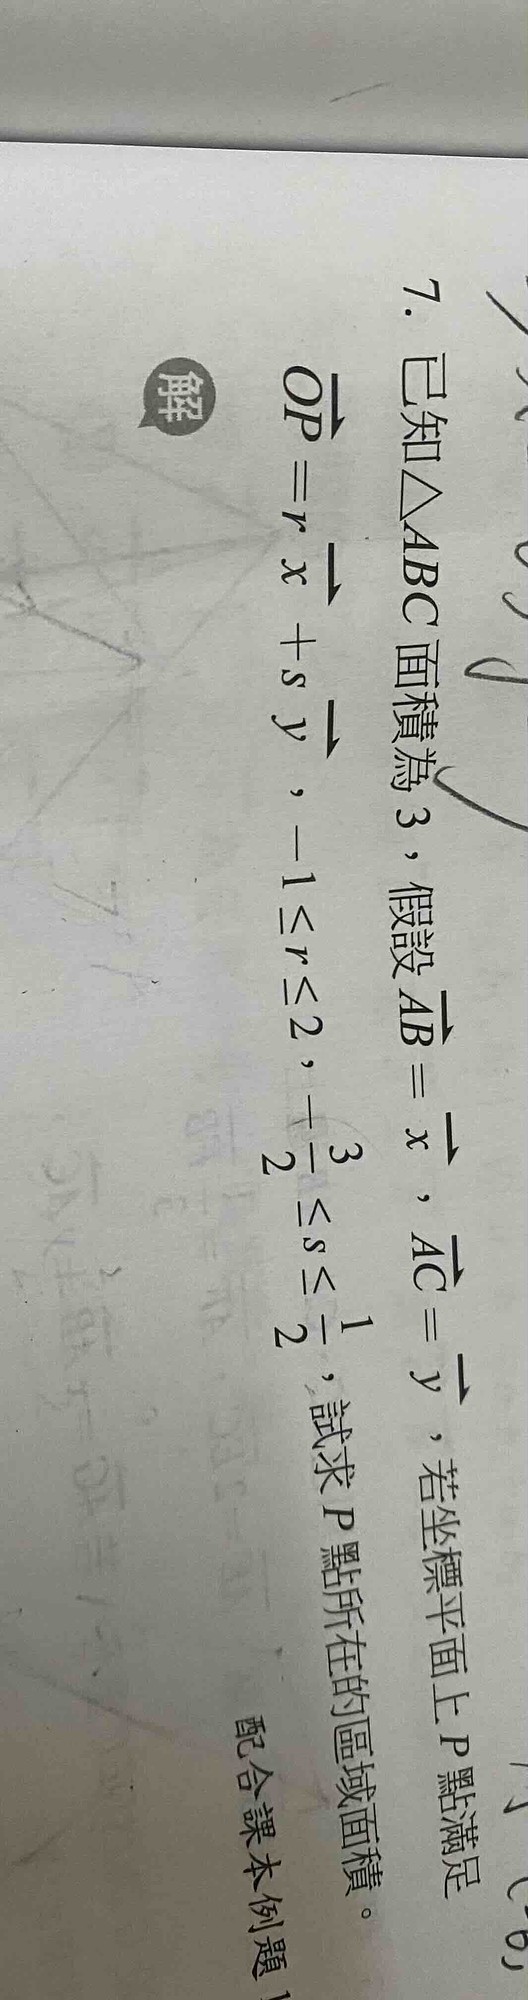 7. 已知△ABC 面積為 3，假設 $\overrightarrow{AB}=\overrightarrow{x}$，$\overrightarrow{AC}=\overrightarrow{y}$，若坐標平面上 P 點滿足
$\overrightarrow{OP}=r\overrightarrow{x}+s\overrightarrow{y}$，$-1\le r\le 2$，$-\frac{3}{2}\le s\le \frac{1}{2}$，試求 P 點所在的區域面積。
配合課本例題 1
解